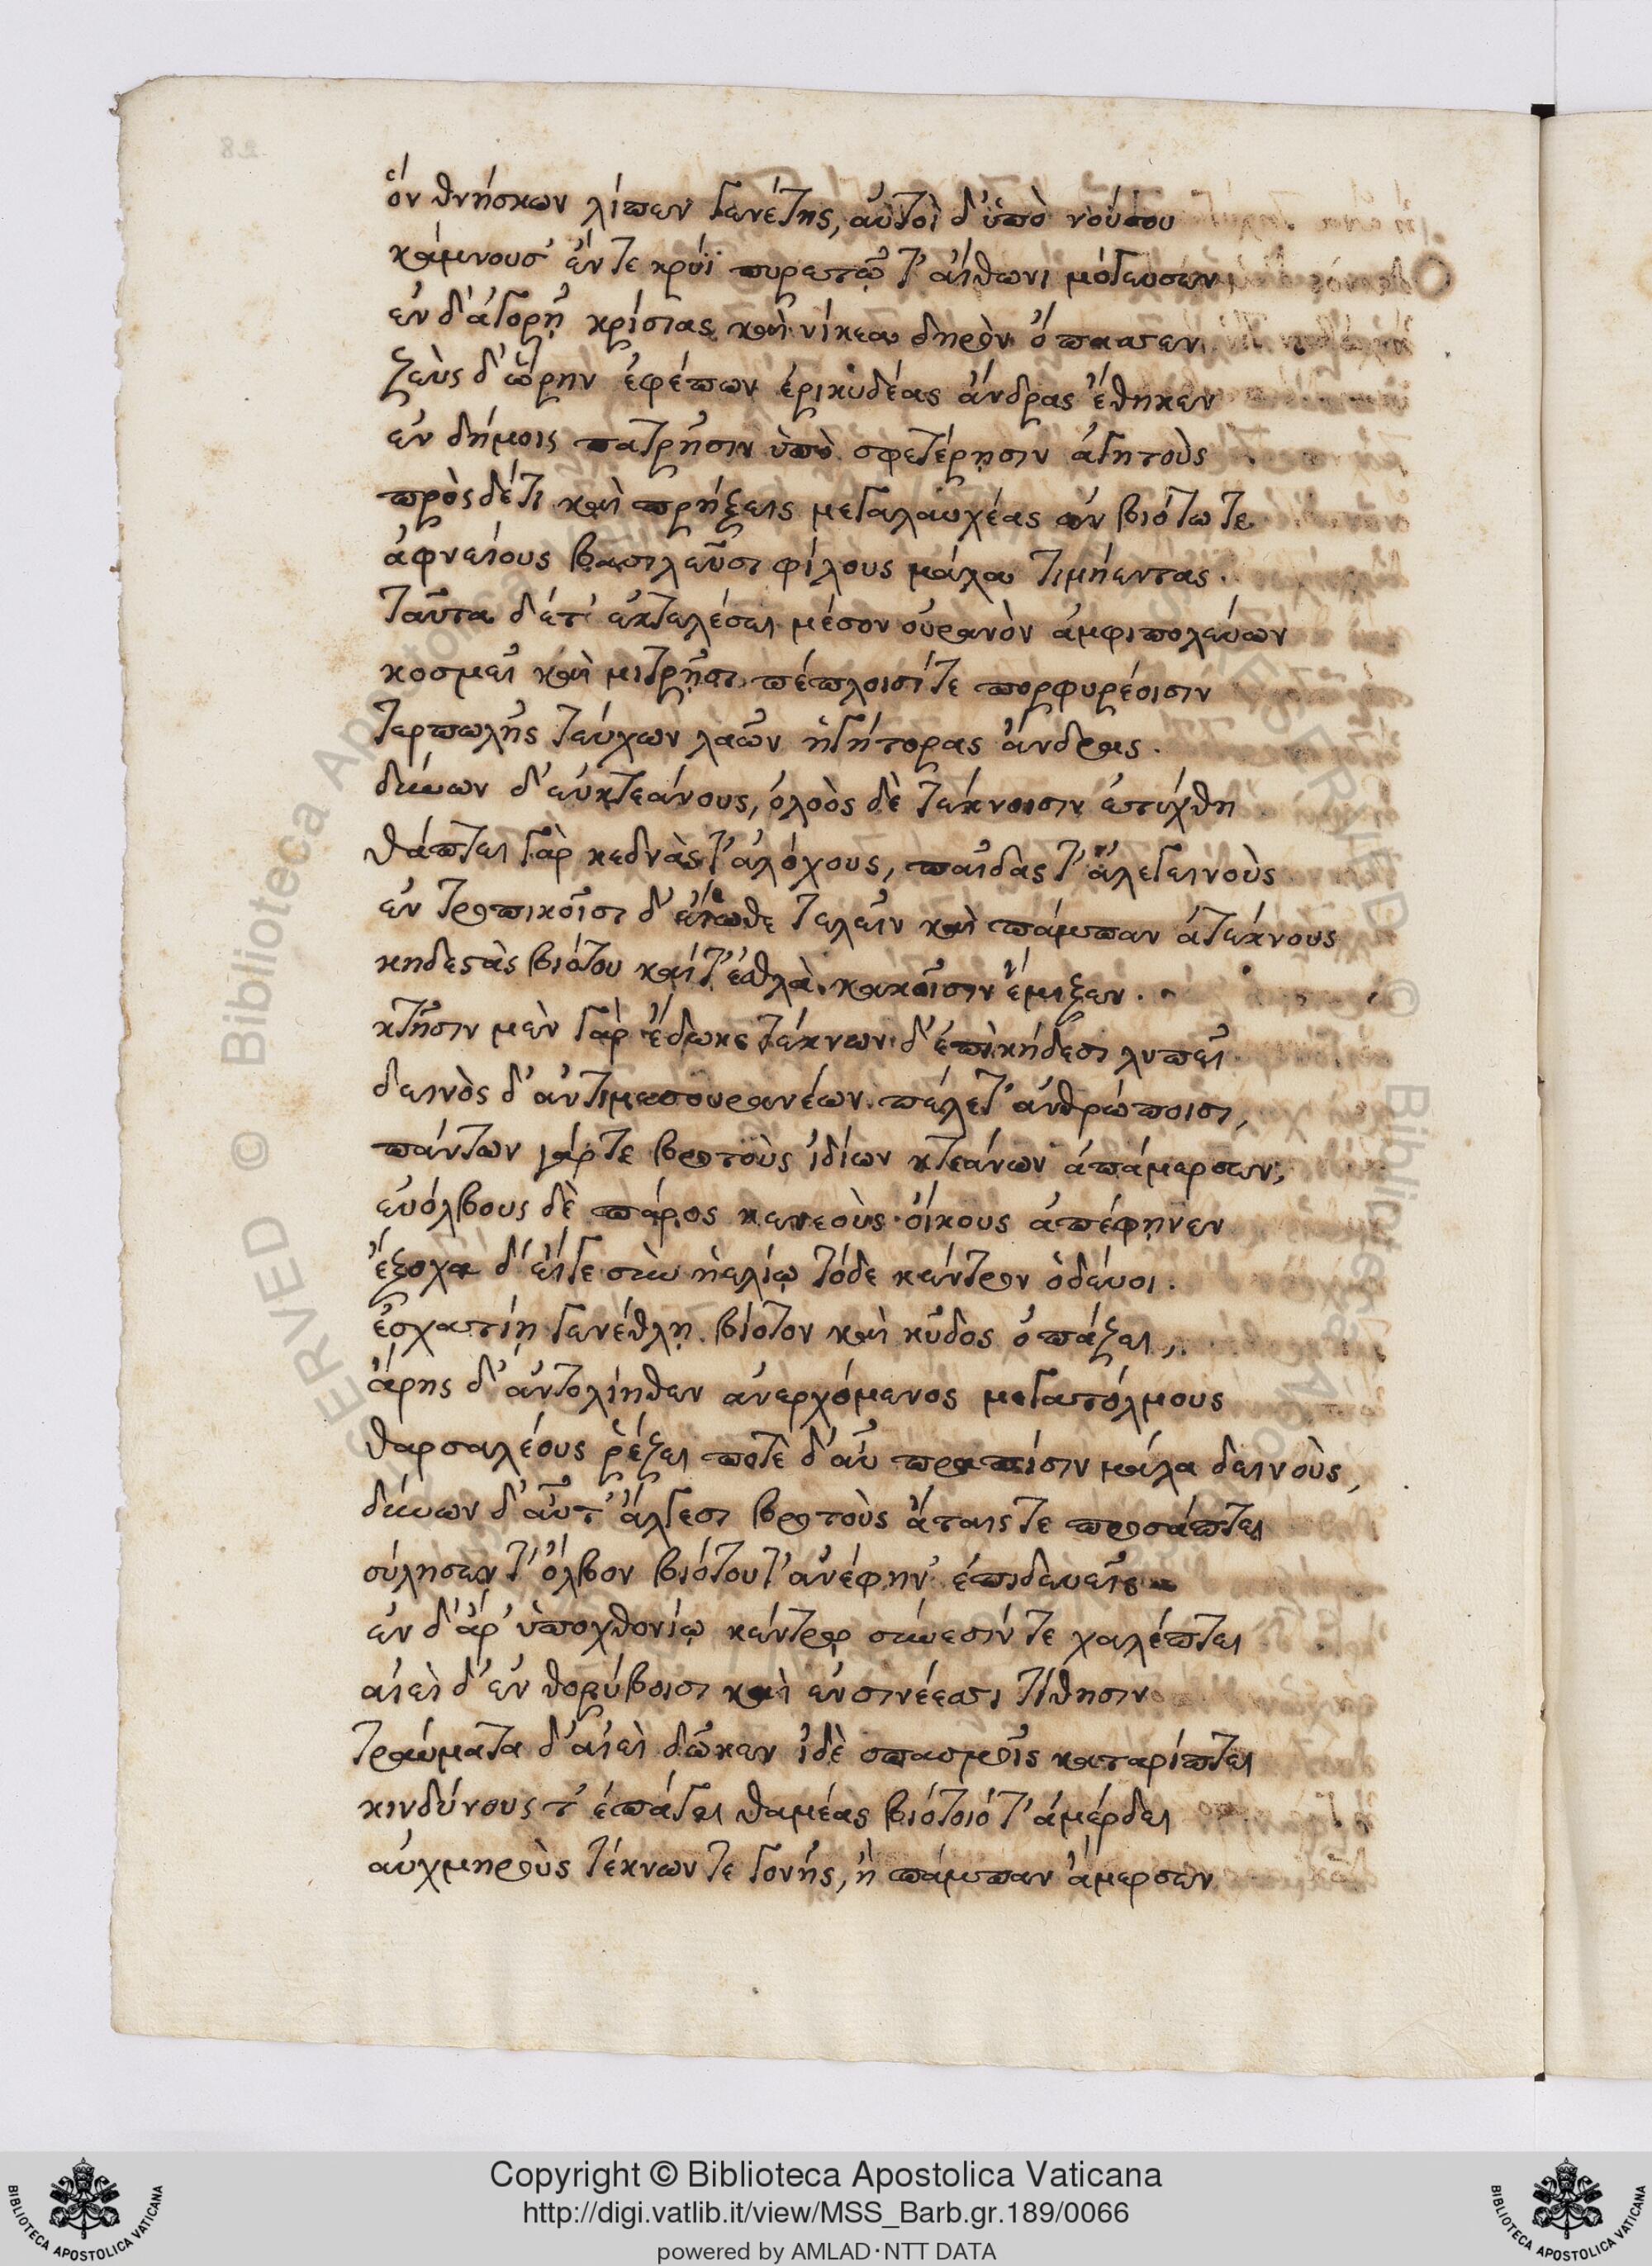 ὃν θνήσκων λίπεν γενέτης, αὐτοὶ δ' ὑπὸ νούσου
κάμνουσ' ἔν τε κρύϊ πυρετῷ τ' αἴθωνι μόγευσαν
ἐν δ' ἀγορῇ κρίσιας καὶ νίκεα δηρὸν ὄπασσεν
Ζεὺς δ' ὥρην ἐφέπων ἐρικυδέας ἄνδρας ἔθηκεν
ἐν δήμοις πατρῇσιν ὑπὸ σφετέρῃσιν ἀγητοὺς
πρὸς δέ τι καὶ πρήξεις μεγαλαυχέας ἐν βιότω τε
ἀφνειοὺς βασιλεῦσι φίλους μάλα τιμήεντας.
ταῦτα δ' ἔτ' ἐκτελέσει μέσον οὐρανὸν ἀμφιπολεύων
κοσμεῖ καὶ μίτρῃσι πέπλοισί τε πορφυρέοισιν
τερπωλῆς τεύχων λαῶν ἡγήτορας ἄνδρας.
δύνων δ' εὐκτεάνους, ὀλοὸς δὲ τέκνοισιν ἐτύχθη
θάπτει γὰρ κεδνάς τ' ἀλόχους, παῖδας τ' ἀλεγεινοὺς
ἐν τροπικοῖσι δ' εἴωθε τελεῖν καὶ πάμπαν ἀτέκνους
κηδεστὰς βιότου καί τ' ἐσθλὰ κακοῖσιν ἔμιξεν.
κτῆσιν μὲν γὰρ ἔδωκε τέκνων δ' ἐπὶ κήδεσι λυπεῖ
δεινὸς δ' ἀντιμεσουρανέων πέλετ' ἀνθρώποισι,
πάντων γάρ τε βροτοὺς ἰδίων κτεάνων ἀπάμερσεν,
εὐόλβους δὲ πάρος κενεοὺς οἴκους ἀπέφηνεν
ἔξοχα δ' εἴ γε σὺν ἠελίῳ τόδε κέντρον ὁδεύοι.
ἐσχατίῃ γενέθλῃ βίοτον καὶ κῦδος ὀπάζει,
ἄρης δ' ἀντολίηθεν ἀνερχόμενος μεγατόλμους
θαρσαλέους ῥέζει ποτὲ δ' αὖ πραπίσιν μάλα δεινοὺς,
δύνων δ' αὖτ' ἄλγεσι βροτοὺς ἄταις τε προσάπτει
σύλησεν τ' ὄλβον βιότου τ' ἀνέφην' ἐπιδευεῖς
ἐν δ' ἄρ' ὑποχθονίῳ κέντρῳ σίνεσίν τε χαλέπτει
αἰεὶ δ' ἐν θορύβοισι καὶ ἐν σινέεσσι τίθησιν
τραύματα δ' αἰεὶ δῶκεν ἰδὲ σπασμοῖς καταρίπτει
κινδύνους τ' ἐπάγει θαμέας βιότοιό τ' ἀμέρδει
αὐχμηροὺς τέκνων τε γονῆς, ἢ πάμπαν ἄμερσεν
Copyright © Biblioteca Apostolica Vaticana
http://digi.vatlib.it/view/MSS_Barb.gr.189/0066
powered by AMLAD·NTT DATA
BIBLIOTECA APOSTOLICA VATICANA
BIBLIOTECA APOSTOLICA VATICANA